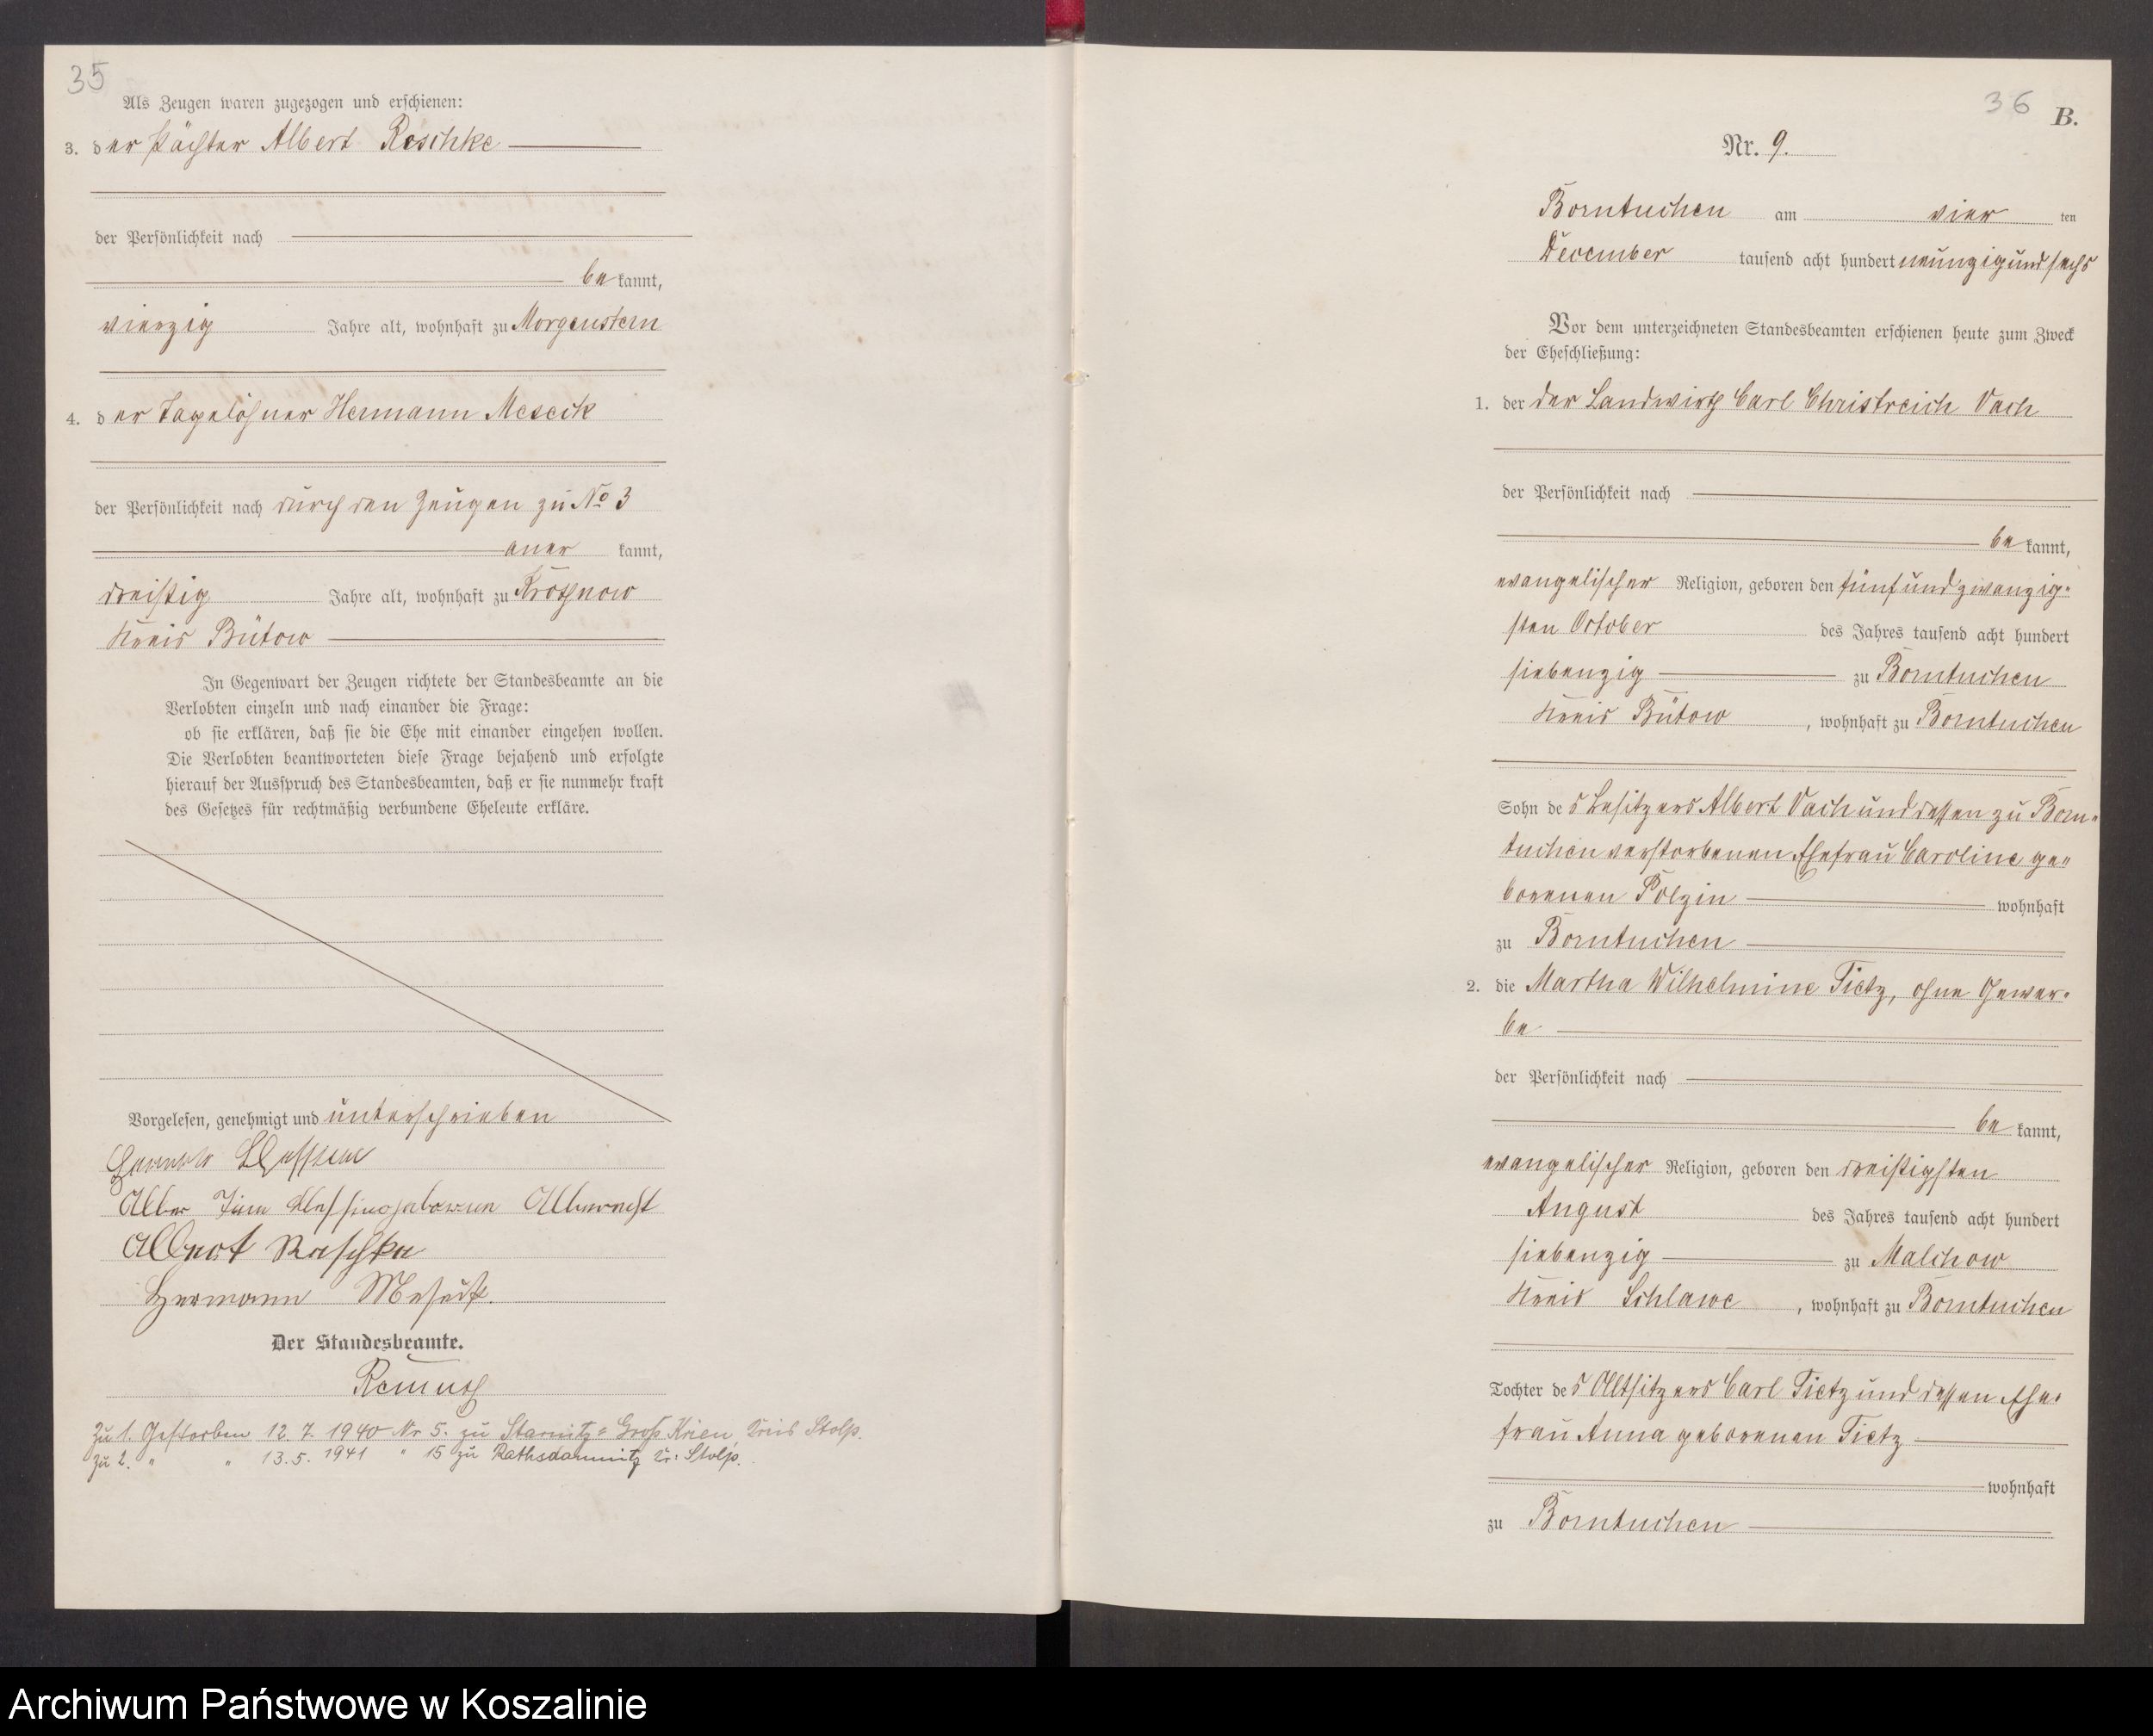 35
Als Zeugen waren zugezogen und erschienen:
3. der Pächter Albert Reschke
der Persönlichkeit nach
bekannt,
vierzig Jahre alt, wohnhaft zu Morgenstern
4. der Tagelöhner Hermann Meseck
der Persönlichkeit nach durch den Zeugen zu No 3
aner kannt,
dreißig Jahre alt, wohnhaft zu Kroßnow
Kreis Bütow
In Gegenwart der Zeugen richtete der Standesbeamte an die
Verlobten einzeln und nach einander die Frage:
ob sie erklären, daß sie die Ehe mit einander eingehen wollen.
Die Verlobten beantworteten diese Frage bejahend und erfolgte
hierauf der Ausspruch des Standesbeamten, daß er sie nunmehr kraft
des Gesetzes für rechtmäßig verbundene Eheleute erkläre.
Vorgelesen, genehmigt und unterschrieben
geborene Albrecht
Albert Raschke
Hermann Meseck.
Der Standesbeamte.
Zu 1. Gestorben 12. 7. 1940 Nr 5. zu Starnitz= Groß Krien, Kreis Stolp.
Zu 2. " " 13. 5. 1941 " 15 zu Rathsdamnitz Kr: Stolp.
36
B.
Nr. 9.
Borntuchen am vier ten
December tausend acht hundert neunzig und sechs
Vor dem unterzeichneten Standesbeamten erschienen heute zum Zweck
der Eheschließung:
1. der der Landwirth Carl Christreich Vach
der Persönlichkeit nach
be kannt,
evangelischer Religion, geboren den fünfundzwanzig=
sten October des Jahres tausend acht hundert
siebenzig zu Borntuchen
Kreis Bütow, wohnhaft zu Borntuchen
Sohn des Besitzers Albert Vach und dessen zu Born=
tuchen verstorbenen Ehefrau Caroline ge=
borenen Polzin wohnhaft
zu Borntuchen
2. die Martha Wilhelmine Tietz, ohne Gewer=
be
der Persönlichkeit nach
be kannt,
evangelischer Religion, geboren den dreißigsten
August des Jahres tausend acht hundert
siebenzig zu Malchow
Kreis Schlawe, wohnhaft zu Borntuchen
Tochter des Altsitzers Carl Tietz und dessen Ehe=
frau Anna geborenen Tietz
wohnhaft
zu Borntuchen
Archiwum Państwowe w Koszalinie